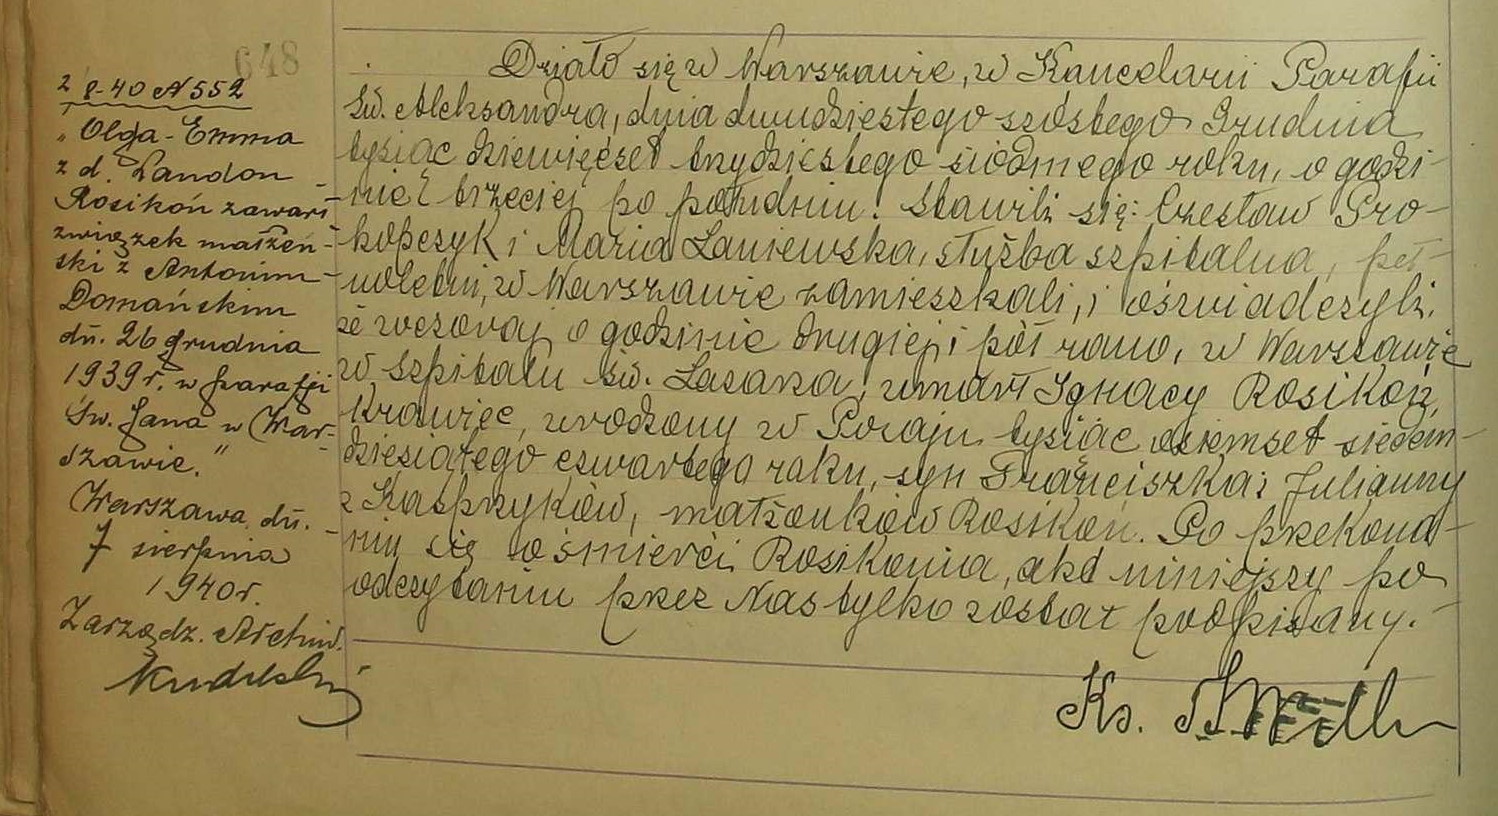 648
2 8-40 N 552
„Olga-Emma
z d. Landon
Rosikoń zawarł
związek małżeń-
ski z Antonim
Domańskim
dn. 26 grudnia
1939 r. w parafji
Św. Jana w War-
szawie."
Warszawa dn.
7 sierpnia
1940 r.
Zarządz. Archiw.
Działo się w Warszawie, w Kancelarii Parafii
Św. Aleksandra, dnia dwudziestego szóstego Grudnia
tysiąc dziewięćset trzydziestego siódmego roku, o godzi-
nie trzeciej po południu. Stawili się: Czesław Pro-
kopczyk i Maria Laniewska, służba szpitalna, peł-
noletni, w Warszawie zamieszkali, i oświadczyli,
że wczoraj o godzinie drugiej i pół rano, w Warszawie
w szpitalu św. Łazarza, umarł Ignacy Rosikoń,
krawiec, urodzony w Poraju tysiąc osiemset siedem-
dziesiątego czwartego roku, syn Franciszka i Julianny
z Kasprzyków, małżonków Rosikoń. Po przekona-
niu się o śmierci Rosikonia, akt niniejszy po
odczytaniu przez Nas tylko został podpisany.
Ks.